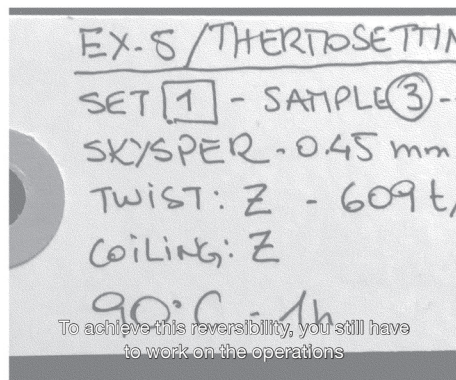 EX.8 /THERMOSETTIN
SET 1 - SAMPLE 3 -
SKYSPER - 0.45 mm
TWIST: Z - 609 t/
COILING: Z
90°C - 1h
To achieve this reversibility, you still have
to work on the operations